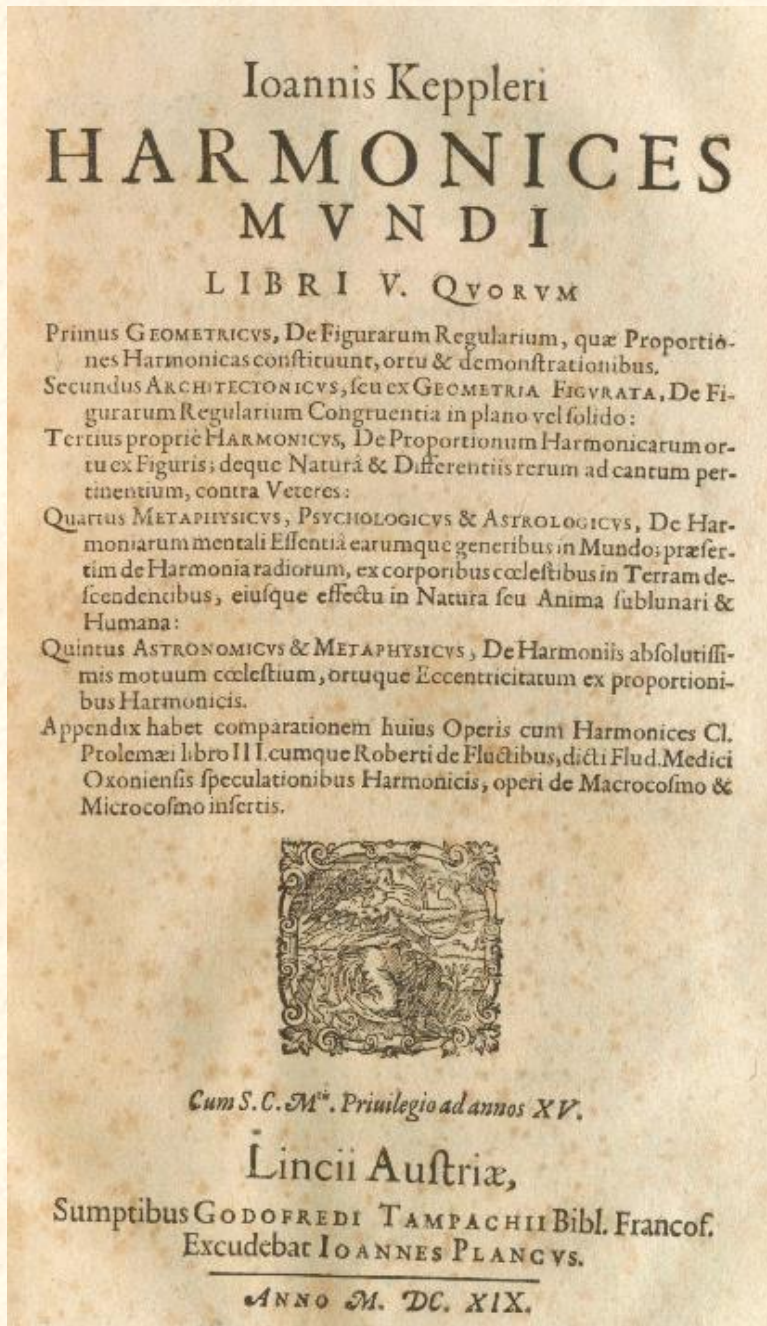 Ioannis Keppleri
HARMONICES
MVNDI
LIBRI V. QVORVM
Primus GEOMETRICVS, De Figurarum Regularium, quæ Proportio-
nes Harmonicas constituunt, ortu & demonstrationibus.
Secundus ARCHITECTONICVS, seu ex GEOMETRIA FIGVRATA, De Fi-
gurarum Regularium Congruentia in plano vel solido:
Tertius propriè HARMONICVS, De Proportionum Harmonicarum or-
tu ex Figuris; deque Naturâ & Differentiis rerum ad cantum per-
tinentium, contra Veteres:
Quartus METAPHYSICVS, PSYCHOLOGICVS & ASTROLOGICVS, De Har-
moniarum mentali Essentiâ earumque generibus in Mundo; præser-
tim de Harmonia radiorum, ex corporibus cœlestibus in Terram de-
scendentibus, eiusque effectu in Natura seu Anima sublunari &
Humana:
Quintus ASTRONOMICVS & METAPHYSICVS, De Harmoniis absolutissi-
mis motuum cœlestium, ortuque Eccentricitatum ex proportioni-
bus Harmonicis.
Appendix habet comparationem huius Operis cum Harmonices Cl.
Ptolemæi libro III. cumque Roberti de Fluctibus, dicti Flud. Medici
Oxoniensis speculationibus Harmonicis, operi de Macrocosmo &
Microcosmo insertis.
Cum S. C. Mtis. Priuilegio ad annos XV.
Lincii Austriæ,
Sumptibus GODOFREDI TAMPACHII Bibl. Francof.
Excudebat IOANNES PLANCVS.
ANNO M. DC. XIX.